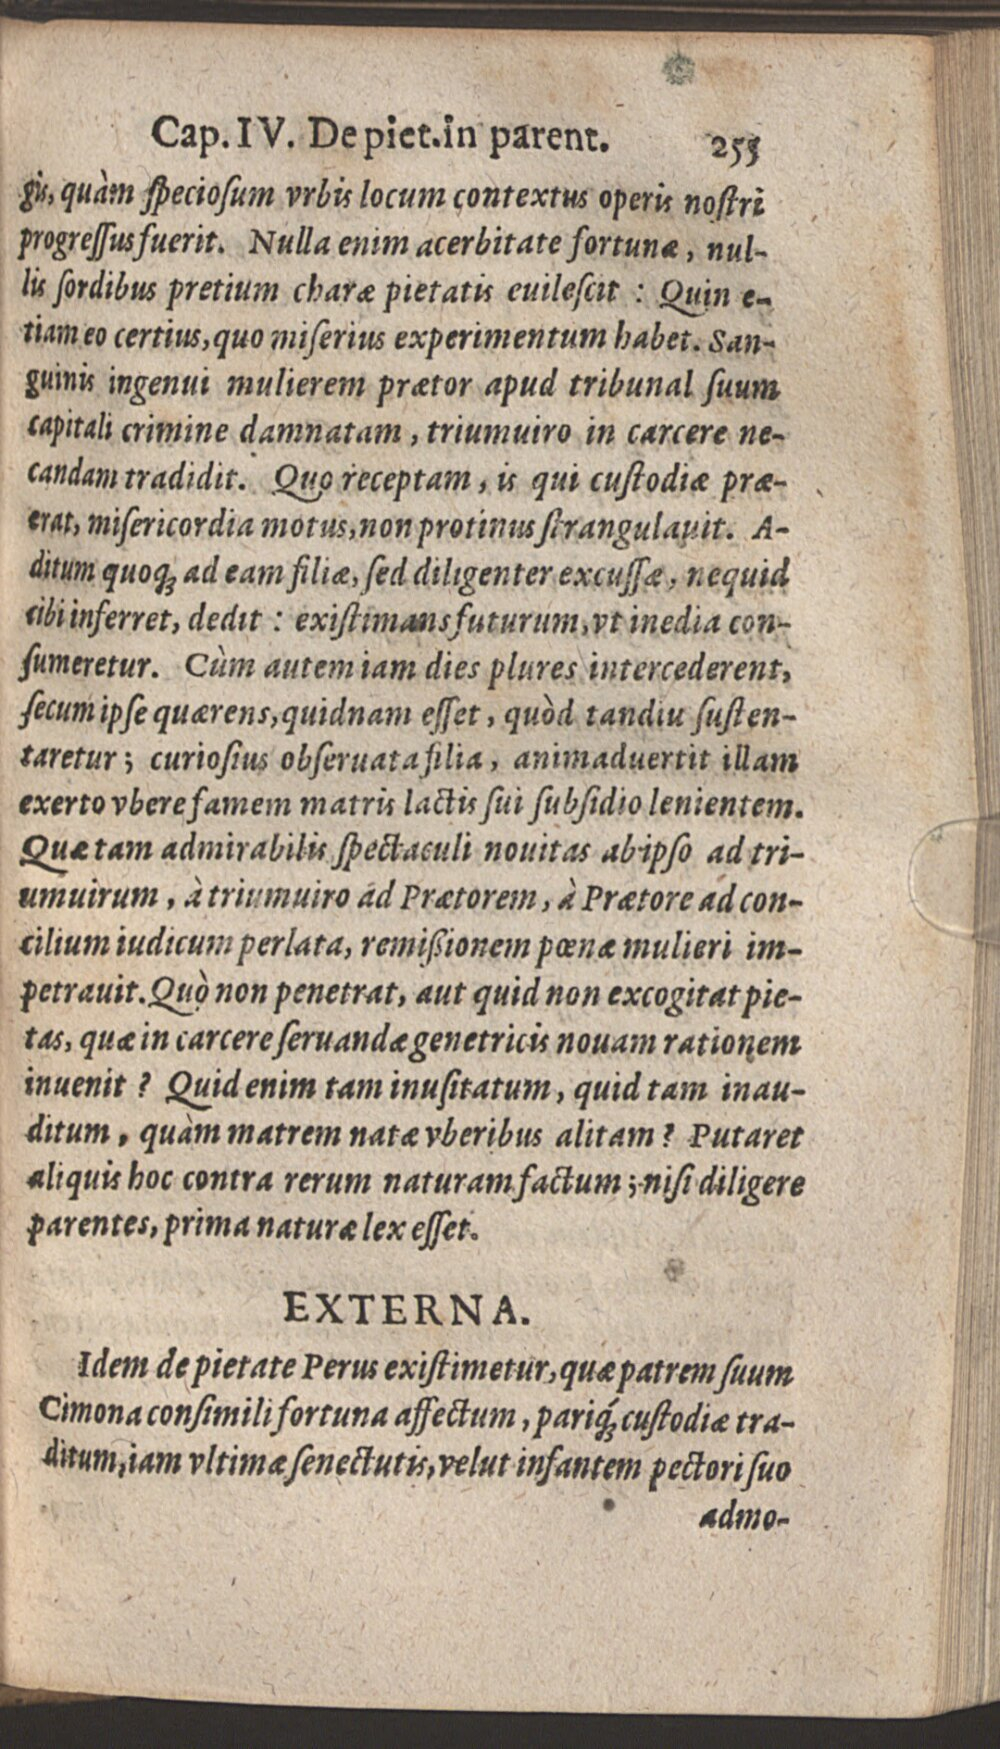 Cap. IV. De piet. in parent. 253
gis, quàm speciosum vrbis locum contextus operis nostri
progressus fuerit. Nulla enim acerbitate fortunæ, nul-
lis sordibus pretium charæ pietatis euilescit : Quin e-
tiam eo certius, quo miserius experimentum habet. San-
guinis ingenui mulierem prætor apud tribunal suum
capitali crimine damnatam, triumuiro in carcere ne-
candam tradidit. Quo receptam, is qui custodiæ præ-
erat, misericordia motus, non protinus strangulauit. A-
ditum quoq; ad eam filiæ, sed diligenter excussæ, nequid
cibi inferret, dedit : existimans futurum, vt inedia con-
sumeretur. Cùm autem iam dies plures intercederent,
secum ipse quærens, quidnam esset, quòd tandiu susten-
taretur; curiosius obseruata filia, animaduertit illam
exerto vbere famem matris lactis sui subsidio lenientem.
Quæ tam admirabilis spectaculi nouitas ab ipso ad tri-
umuirum, à triumuiro ad Prætorem, à Prætore ad con-
cilium iudicum perlata, remißionem pœnæ mulieri im-
petrauit. Quò non penetrat, aut quid non excogitat pie-
tas, quæ in carcere seruandæ genetricis nouam rationem
inuenit ? Quid enim tam inusitatum, quid tam inau-
ditum, quàm matrem natæ vberibus alitam ? Putaret
aliquis hoc contra rerum naturam factum; nisi diligere
parentes, prima naturæ lex esset.
EXTERNA.
Idem de pietate Perus existimetur, quæ patrem suum
Cimona consimili fortuna affectum, pariq́; custodiæ tra-
ditum, iam vltimæ senectutis, velut infantem pectori suo
admo-